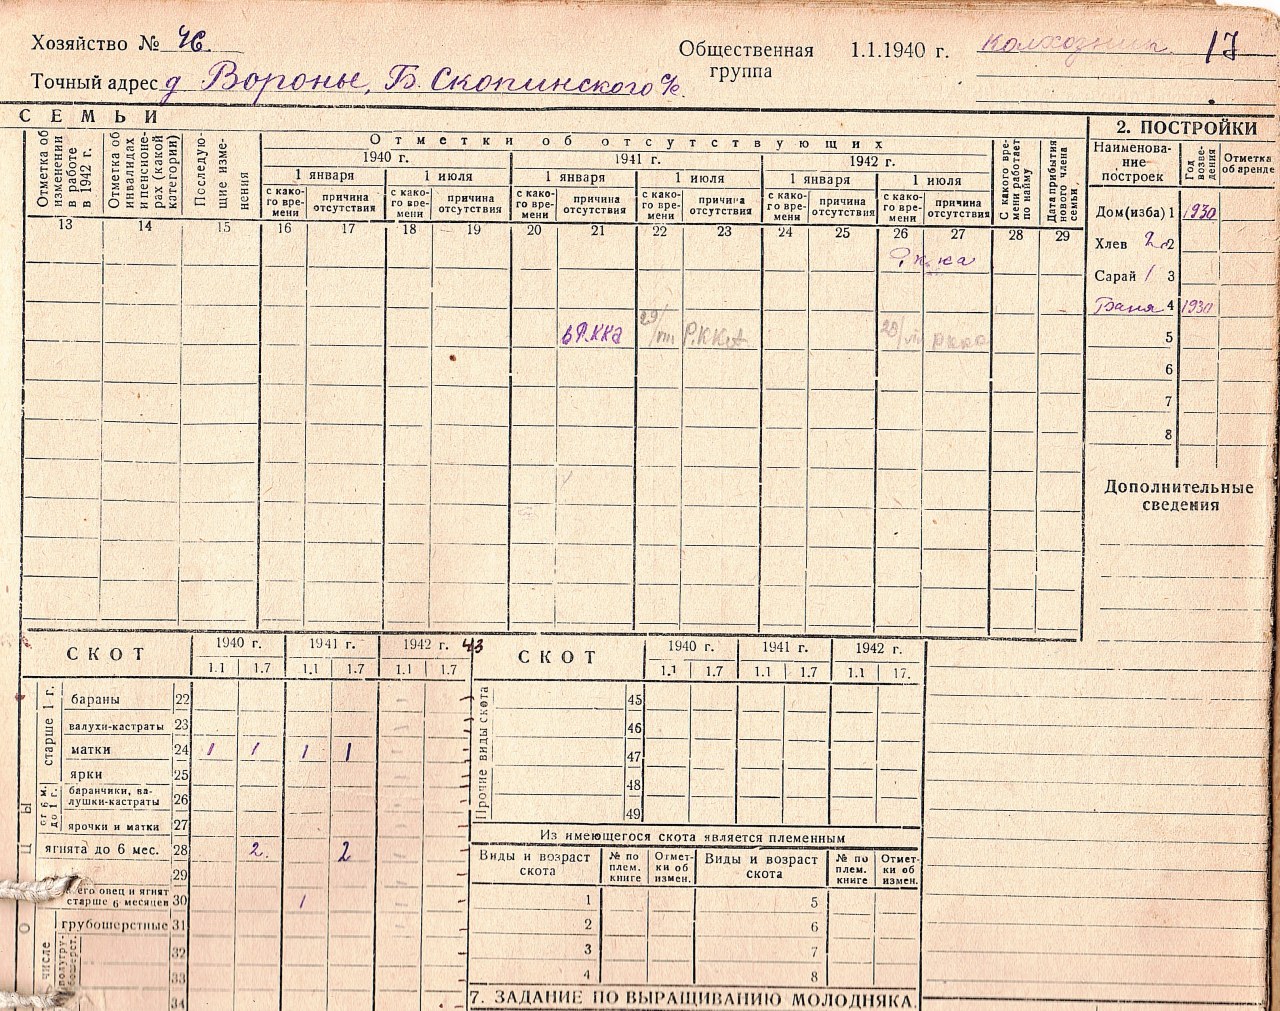 Хозяйство № 46
Общественная группа 1.1.1940 г. колхозник 17
Точный адрес д Вороны, Б. Скопинского с/с.
СЕМЬИ
Отметка об изменении в работе в 1942 г.
Отметка об инвалидах и пенсионерах (какой категории)
Последующие изменения
Отметки об отсутствующих
1940 г. 1941 г. 1942 г.
1 января 1 июля 1 января 1 июля 1 января 1 июля
с како-го вре-мени причина отсутствия с како-го вре-мени причина отсутствия с како-го вре-мени причина отсутствия с како-го вре-мени причина отсутствия с како-го вре-мени причина отсутствия с како-го вре-мени причина отсутствия
С какого вре-мени работает по найму
Дата прибытия нового члена семьи
13 14 15 16 17 18 19 20 21 22 23 24 25 26 27 28 29
Ркка
в РККА 29/VIII РККА 29/VIII РККА
2. ПОСТРОЙКИ
Наименова-ние построек Год возве-дения Отметка об аренде
Дом(изба) 1 1930
Хлев 2 2
Сарай 1 3
Баня 4 1930
5
6
7
8
Дополнительные
сведения
СКОТ 1940 г. 1941 г. 1942 г. 43
1.1 1.7 1.1 1.7 1.1 1.7
старше 1 г.
бараны 22
валухи-кастраты 23
матки 24 1 1 1 1
ярки 25
от 6 м. до 1 г.
баранчики, ва-лушки-кастраты 26
ярочки и матки 27
ягнята до 6 мес. 28 2. 2
29
его овец и ягнят старше 6 месяцев 30 1
грубошерстные 31
числе
полугру-бошерст.
32
33
34
ЦЫ
О
СКОТ 1940 г. 1941 г. 1942 г.
1.1 1.7 1.1 1.7 1.1 17.
Прочие виды скота
45
46
47
48
49
Из имеющегося скота является племенным
Виды и возраст скота № по плем. книге Отмет-ки об измен. Виды и возраст скота № по плем. книге Отмет-ки об измен.
1 5
2 6
3 7
4 8
7. ЗАДАНИЕ ПО ВЫРАЩИВАНИЮ МОЛОДНЯКА